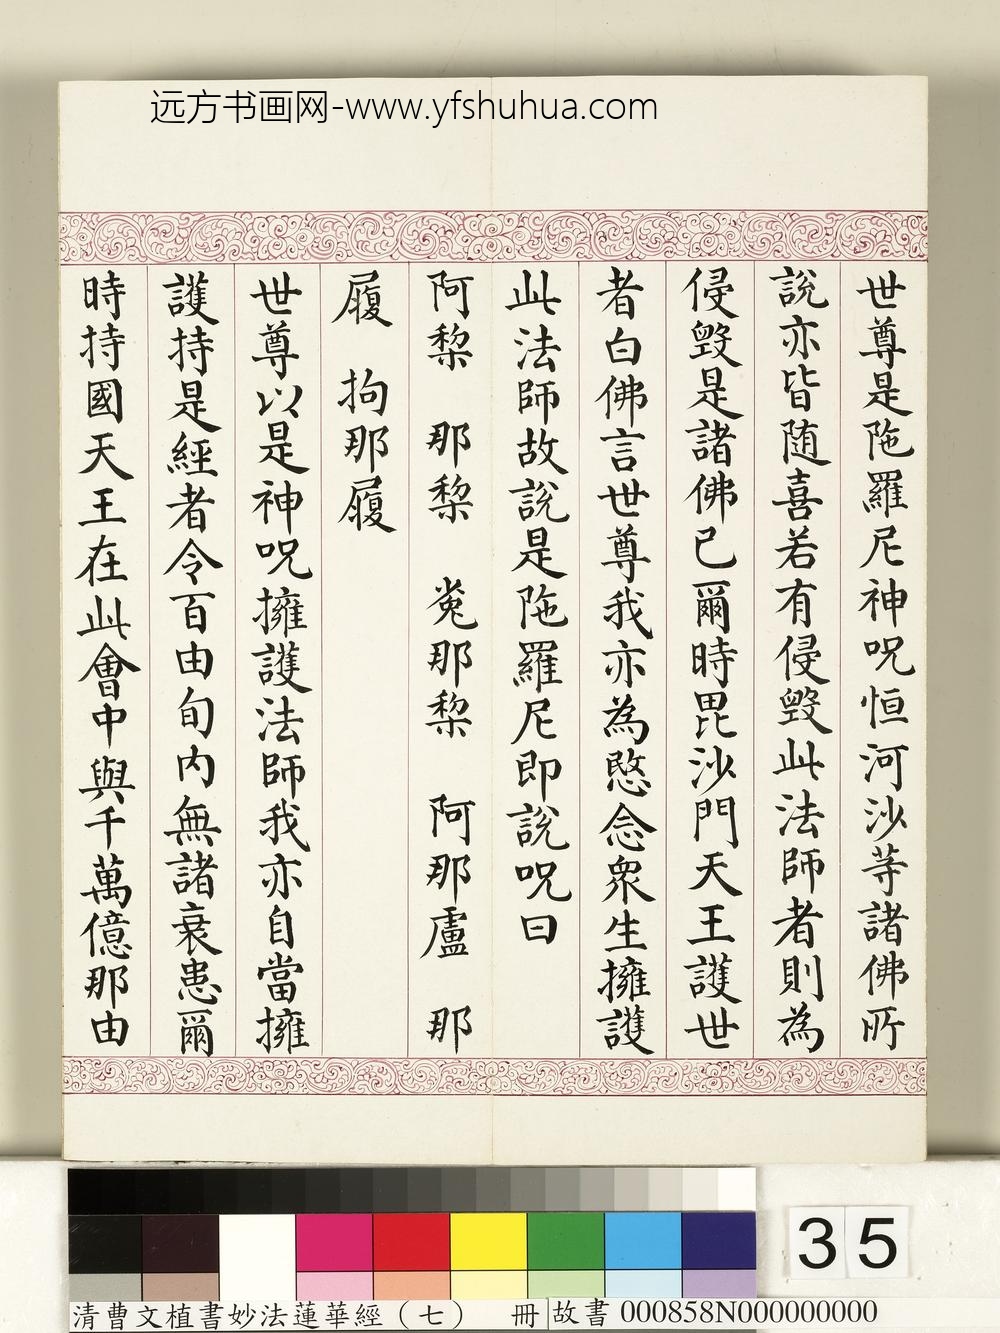 远方书画网-www.yfshuhua.com
世尊是陁羅尼神呪恒河沙等諸佛所
說亦皆随喜若有侵毀此法師者則為
侵毀是諸佛已爾時毘沙門天王護世
者白佛言世尊我亦為愍念衆生擁護
此法師故說是陁羅尼即說呪曰
阿棃 那棃 㝹那棃 阿那盧 那
履 拘那履
世尊以是神呪擁護法師我亦自當擁
護持是經者令百由旬内無諸衰患爾
時持國天王在此會中與千萬億那由
35
清曹文植書妙法蓮華經（七） 冊
故書 000858N000000000